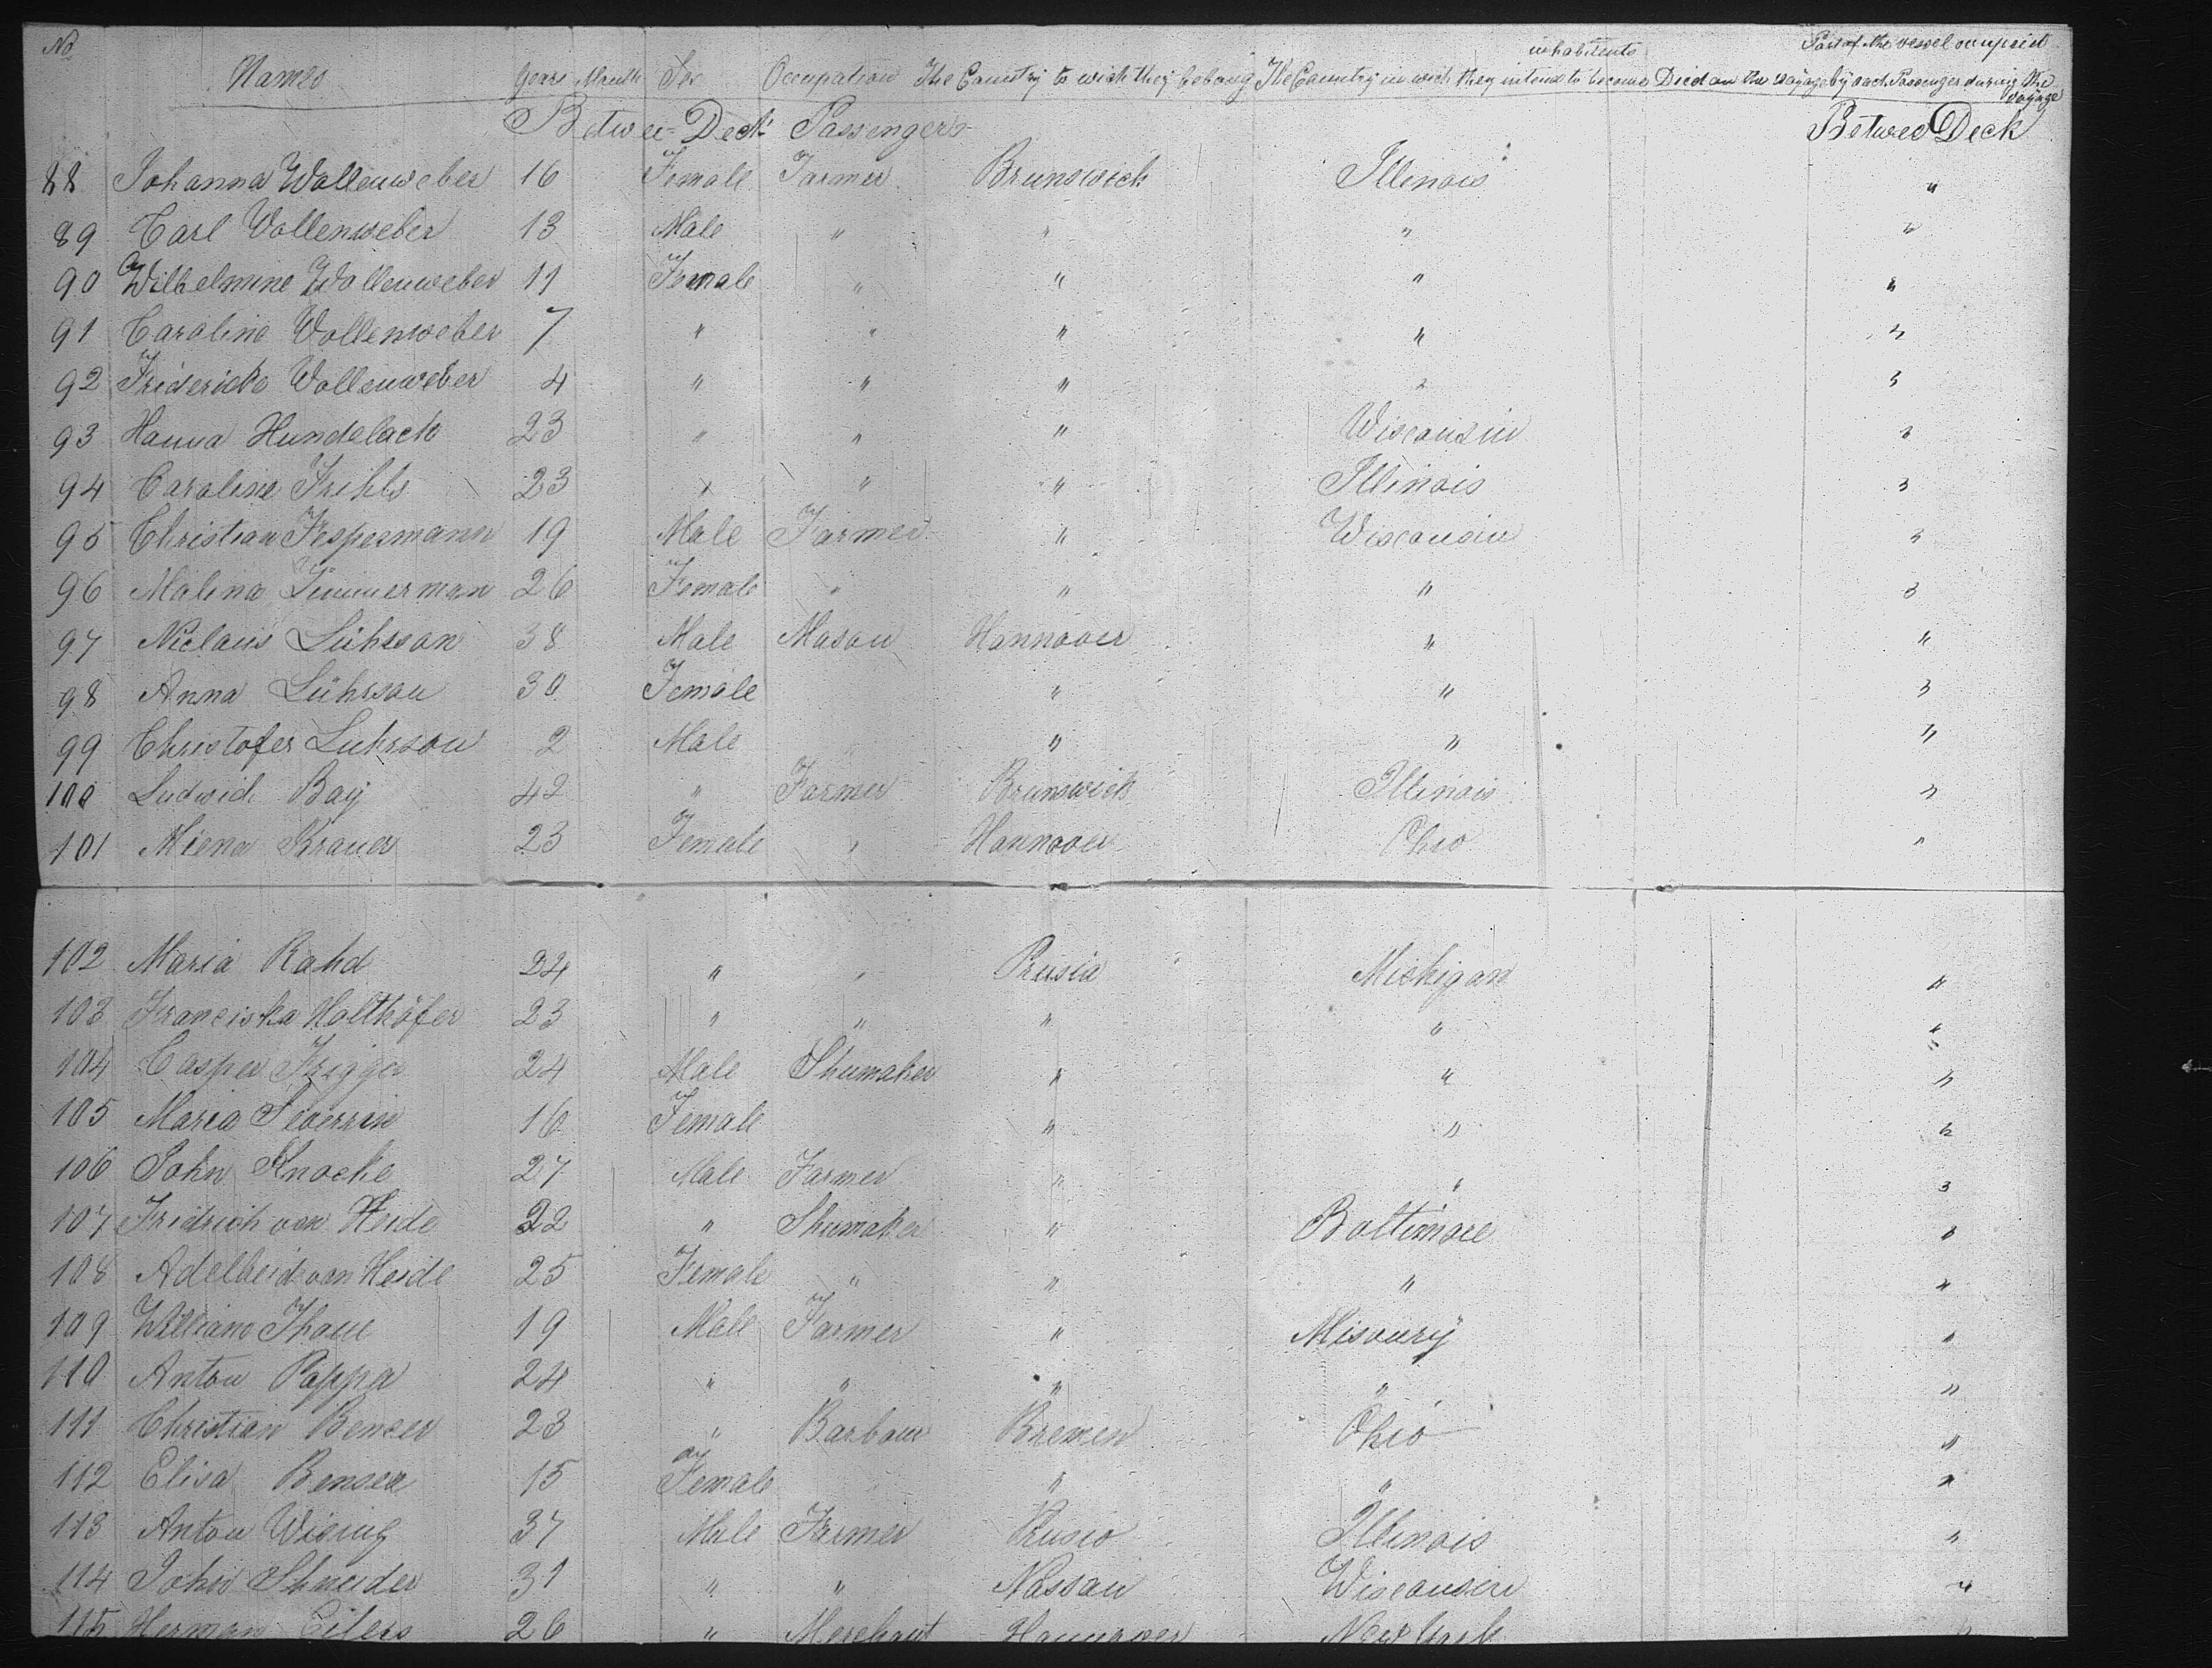 No Names Years Month Sex Occupation The Country to wich they belong The Country in wich they intend to become inhabitents Died on the voyage Part of the vessel occupied by each Passenger during the voyage
Betwee- Deck Passengers Betwee Deck
88 Johanna Wollenweber 16 Female Farmer Brunswick Illenois "
89 Carl Wollenweber 13 Male " " " "
90 Wilhelmine Wollenweber 11 Female " " " "
91 Caroline Wollenweber 7 " " " " "
92 Fridericke Wollenweber 4 " " " " "
93 Hanna Hundelack 23 " " " Wisconsin "
94 Caroline 23 " " " Illinois "
95 Christian Fespermann 19 Male Farmer " Wisconsin "
96 Malina Zimmerman 26 Female " " " "
97 Niclaus Lührson 38 Male Mason Hannover " "
98 Anna Lührson 30 Female " " "
99 Christofer Luhrson 2 Male " " "
100 Ludwich Bay 42 " Farmer Brunswick Illinois "
101 Miena 23 Female " Hannover Ohio "
102 Maria Rahd 24 " " Prusia Michigan "
103 Franciska Holthöfer 23 " " " " "
104 Casper 24 Male Shumaker " " "
105 Maria 16 Female " " "
106 John Knocke 27 Male Farmer " " "
107 Fridrich von Heide 22 " Shumaker " Baltimore "
108 Adelheid von Heide 25 Female " " " "
109 William 19 Male Farmer " Misoury "
110 Anton Poppa 24 " " " " "
111 Christian Benser 23 " Barbour Bremen Ohio "
112 Elisa Benser 15 Female " " "
113 Anton Wising 37 Male Farmer Prusia Illinois "
114 John Shneider 31 " " Nassau Wisconsin "
115 Herman Eilers 26 " Merchant Hannover New York